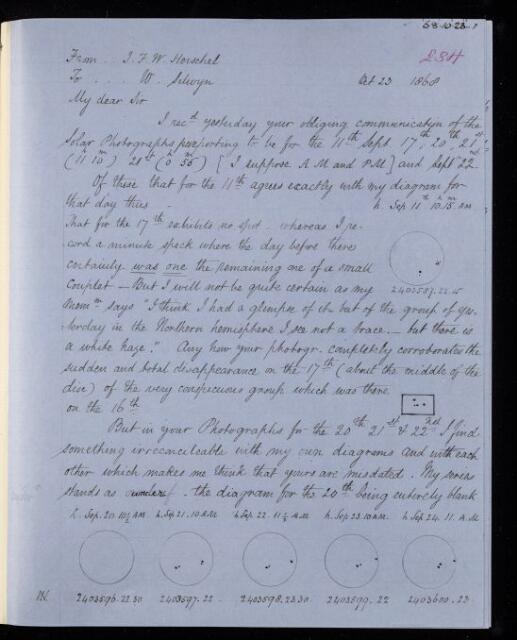 68.10.23.1
LSH
From .. J. F. W. Herschel
To ... W. Selwyn
Oct 23 1868
My dear Sir
I rec.d yesterday your obliging communication of the
Solar Photographs purporting to be for the 11th Sept 17th, 20th, 21st
21st (0h 55m) [I suppose A M and P M] and Sept 22nd
Of these that for the 11th agrees exactly with my diagram for
that day thus -
h. Sep 11th 10h.15m. AM
That for the 17th exhibits no spot - whereas I re-
cord a minute speck where the day before there
certainly was one the remaining one of a small
Couplet - But I will not be quite certain as my
2403587.22.15
Memm says "I think I had a glimpse of it but of the group of yes-
terday in the Northern hemisphere I see not a trace. - but there is
a white haze." Any how your photogr. completely corroborates the
sudden and total disappearance on the 17th (about the middle of the
disc) of the very conspicuous group which was there
on the 16th
But in your Photographs for the 20th 21st & 22nd I find
something irreconcileable with my own diagrams and with each
other which makes me think that yours are misdated. My series
stands as under. the diagram for the 20th being entirely blank
h. Sep. 20. 10½ AM h. Sep 21. 10 AM h. Sep 22. 11½ AM h. Sep 23. 10 AM h. Sep 24. 11. A M
2403596.22.30 2403597.22 2403598.23.30 2403599.22 2403600.23